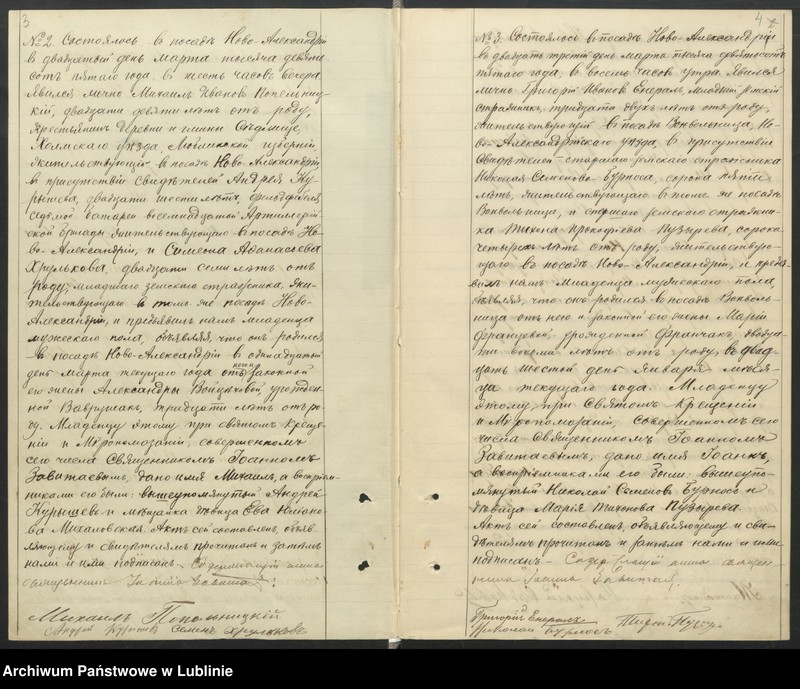 3
№ 2. Состоялось в посадѣ Ново-Александріи
в двадцатый день Марта тысяча девять
сотъ пятаго года в шесть часовъ вечера.
Явился лично Михаилъ Ивановъ
двадцати девяти лѣтъ отъ роду,
крестьянинъ деревни и гмины
Холмскаго уѣзда, Люблинской губерніи
жительствующій въ посадѣ Ново-Александріи
в присутствіи свидѣтелей Андрея
двадцати шести лѣтъ, фельдфебеля
седьмой батареи восемнадцатой Артиллерій-
ской бригады жительствующаго в посадѣ Но-
во-Александріи, и Симеона Аѳанасьева
Хрулькова, двадцати семи лѣтъ отъ
роду, младшаго земскаго стражника, жи-
тельствующаго в томъ же посадѣ Ново-
Александріи, и предъявилъ намъ младенца
мужескаго пола, объявляя, что онъ родился
в посадѣ Ново-Александріи в одинадцатый
день Марта текущаго года отъ законной
его жены Александры Войцѣховой, урожден-
ной тридцати лѣтъ отъ ро-
ду. Младенцу этому при святомъ Креще-
ніи и Мѵропомазаніи, совершенномъ
сего числа Священникомъ Іоанномъ
дано имя Михаилъ, а воспріем-
никами его были: вышеупомянутый Андрей
и дѣвица Ева
Михаловская. Актъ сей составленъ, объяв-
ляющему и свидѣтелямъ прочитанъ и затѣмъ
нами и ими подписанъ –
Михаилъ
Андрей Семенъ Хрульковъ
4
№ 3. Состоялось в посадѣ Ново-Александріи
в двадцать третій день марта тысяча девятьсотъ
пятаго года, в восемь часовъ утра. Явился
лично Григорій Ивановъ младшій земскій
стражникъ, тридцати двухъ лѣтъ отъ роду,
жительствующій в посадѣ Вонвольница, Но-
во-Александрійскаго уѣзда, в присутствіи
свидѣтелей – старшаго земскаго стражника
Николая Семенова Бурноса, сорока пяти
лѣтъ, жительствующаго в томъ же посадѣ
Вонвольница, и старшаго земскаго стражни-
ка Тихона Прокофіева Пузырева, сорока
четырехъ лѣтъ отъ роду, жительствую-
щаго въ посадѣ Ново-Александріи, и предъя-
вилъ намъ младенца мужескаго пола,
объявляя, что онъ родился в посадѣ Вонволь-
ница отъ него и законной его жены Маріи
Францевой, урожденной Франчакъ, двадца-
ти восьми лѣтъ отъ роду, в двад-
цать шестой день Января мѣся-
ца текущаго года. Младенцу
этому при Святомъ Крещеніи
и Мѵропомазаніи, совершенномъ сего
числа Священникомъ Іоанномъ
дано имя Іоаннъ,
а воспріемниками его были: вышеупо-
мянутый Николай Семеновъ Бурносъ и
дѣвица Марія Тихонова Пузырева.
Актъ сей составленъ, объявляющему и сви-
дѣтелямъ прочитанъ и затѣмъ нами и ими
подписанъ –
Григорій
Николай Бурносъ
Archiwum Państwowe w Lublinie